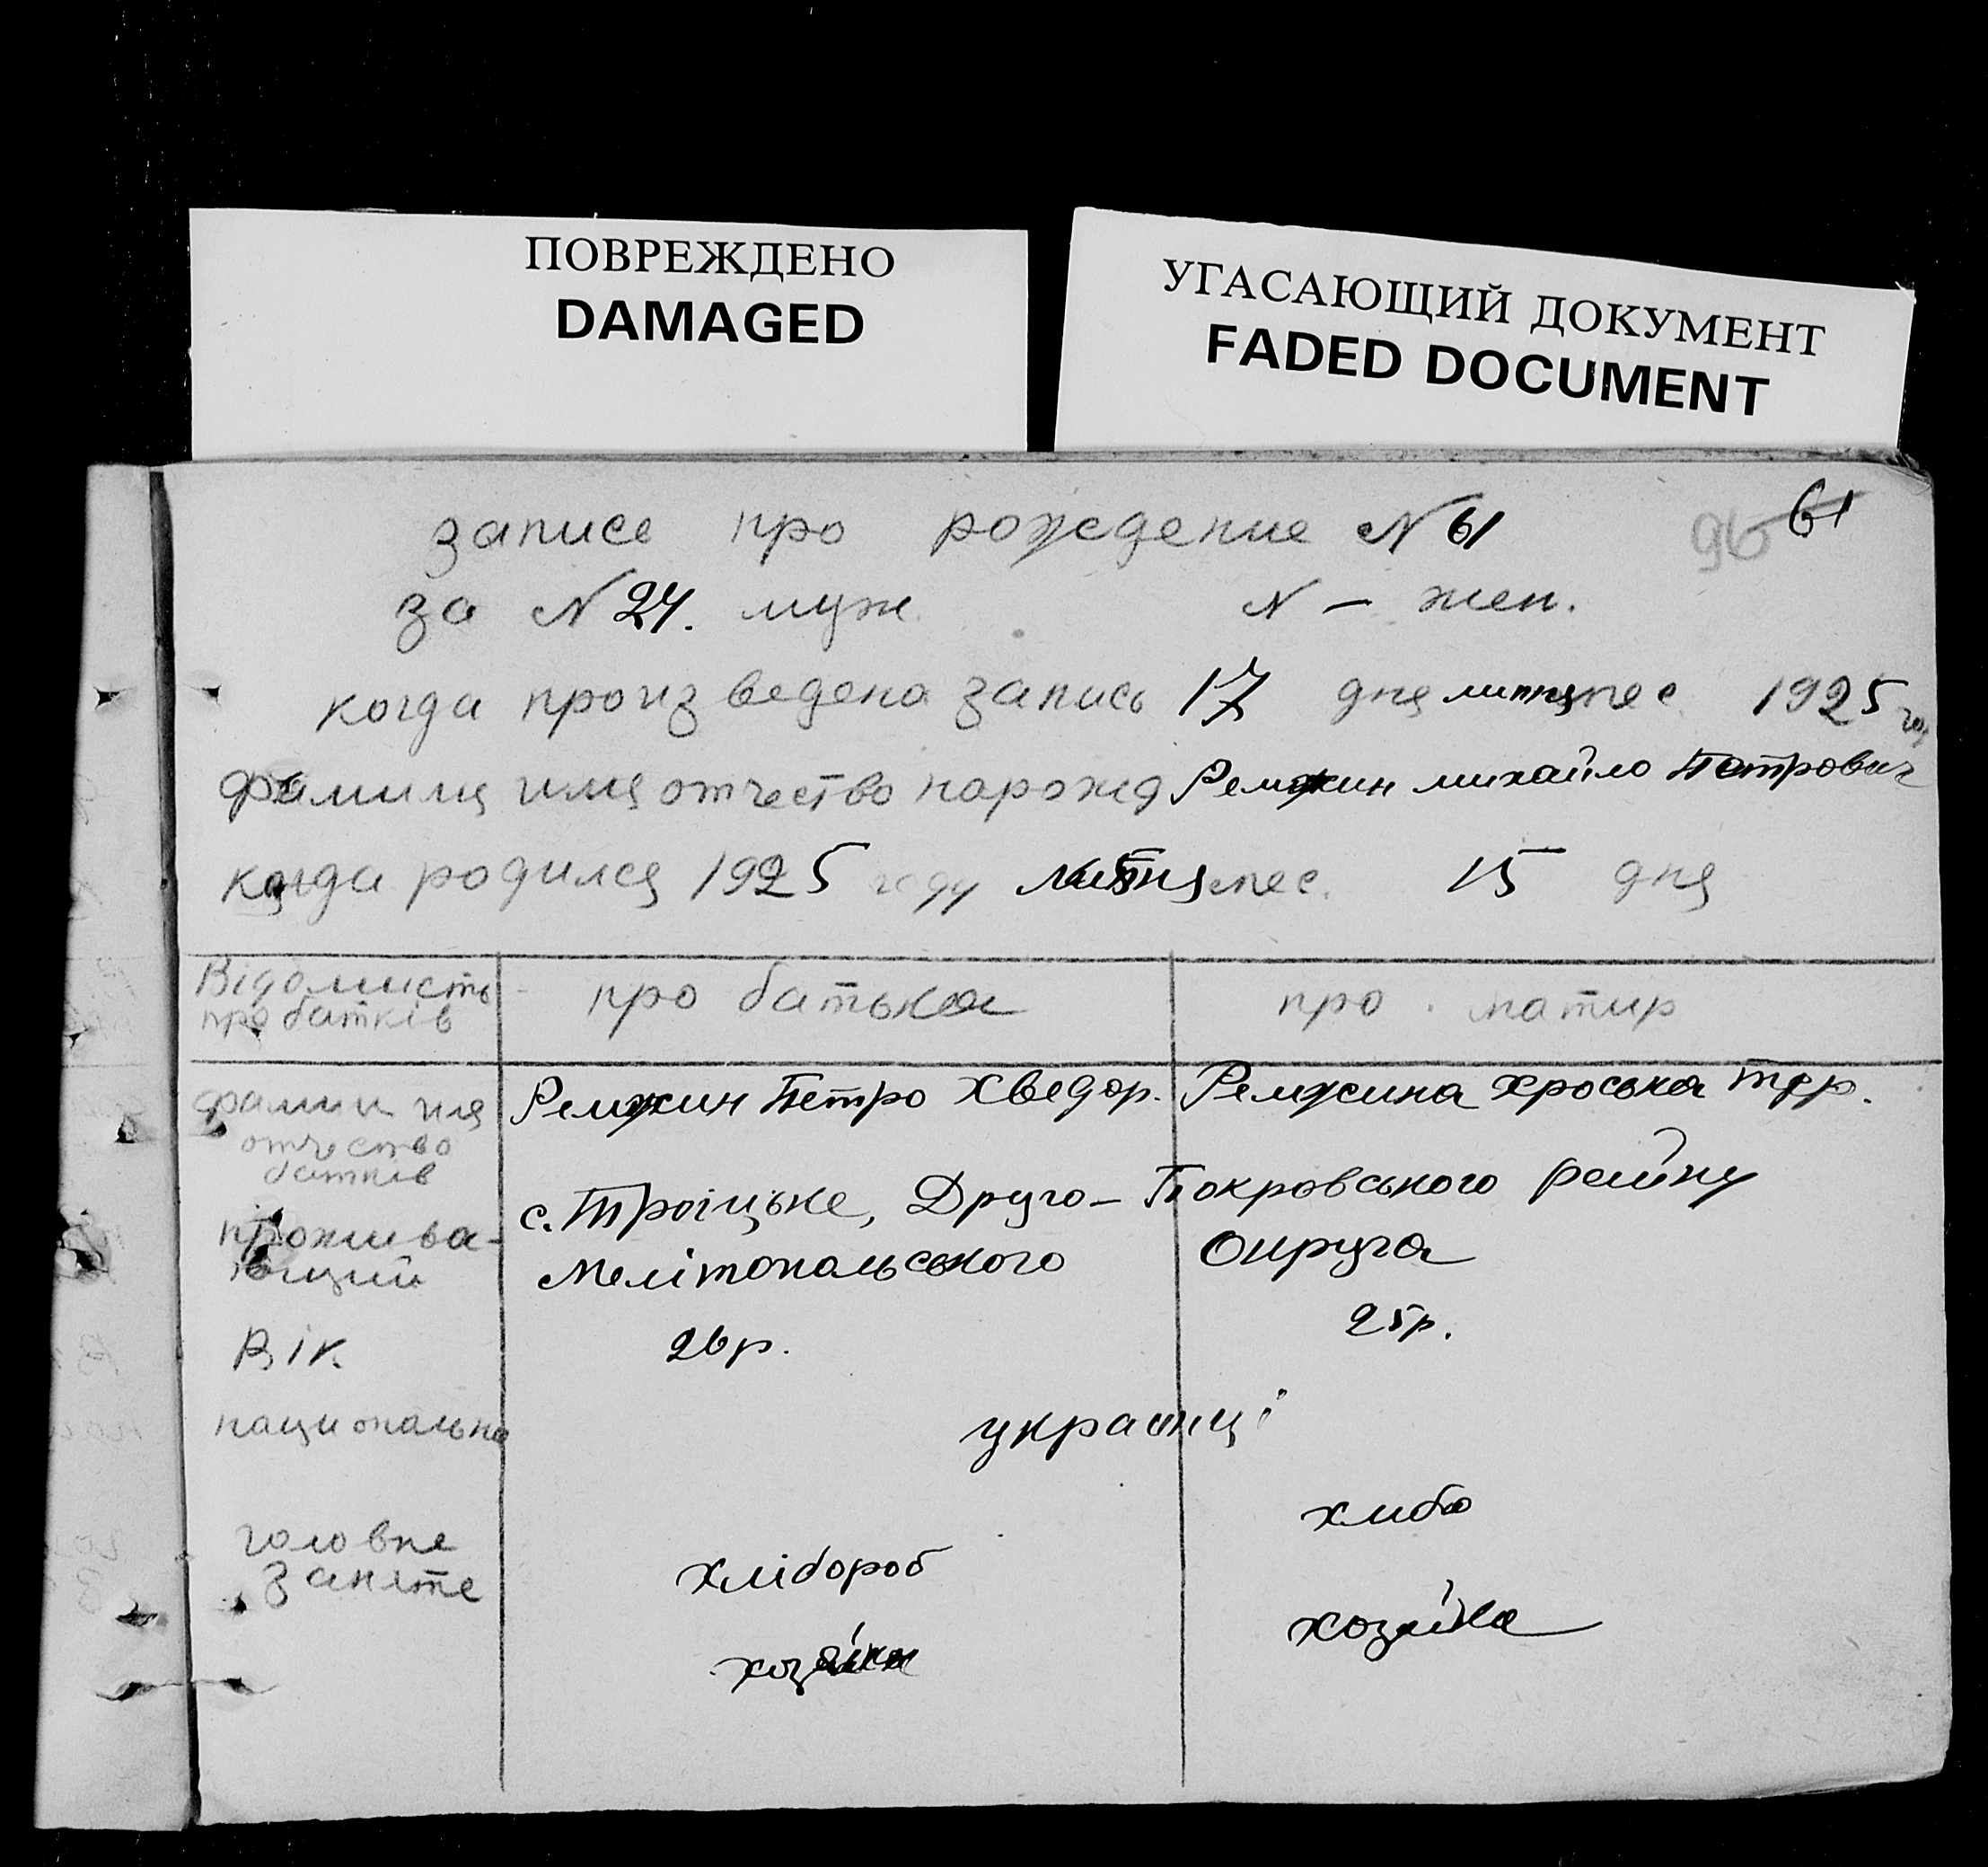 ПОВРЕЖДЕНО
DAMAGED
УГАСАЮЩИЙ ДОКУМЕНТ
FADED DOCUMENT
61
96
записе про рождение N 61
за N 24. муж. N – жен.
когда произведена запись 17 дня липня мес 1925 год
фамилия имя отчество нарожд Ремжин михайло Петрович
когда родился 1925 году липня мес. 15 дня
Відомисть про батька про матир
про батків
фамил имя Ремжин Петро Хведор. Ремжина Хроська
отчество
батків
прожива- с. Троіцьке, Друго-Покровського району
ющий Мелітопольського Округа
Вік 26 р. 25 р.
национально украінці
головне хлібороб
заняте хозяйка